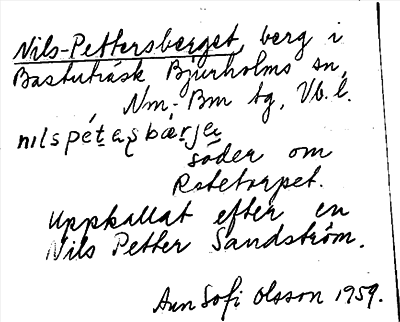 Nils-Pettersberget, berg i
Bastuträsk Bjurholms sn,
Nm.-Bm tg, Vb. l.
söder om
Rotetorpet.
Uppkallat efter en
Nils Petter Sandström.
Ann Sofi Olsson 1959.